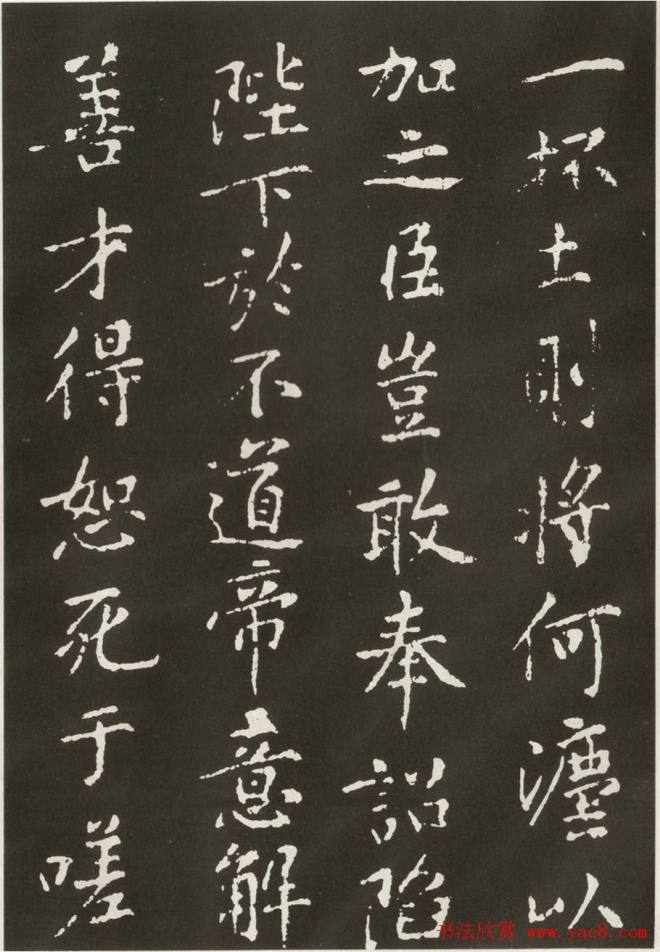 一抔土則將何法以
加之臣豈敢奉詔陷
陛下於不道帝意解
善才得恕死于嗟
书法欣赏 www.yac8.com